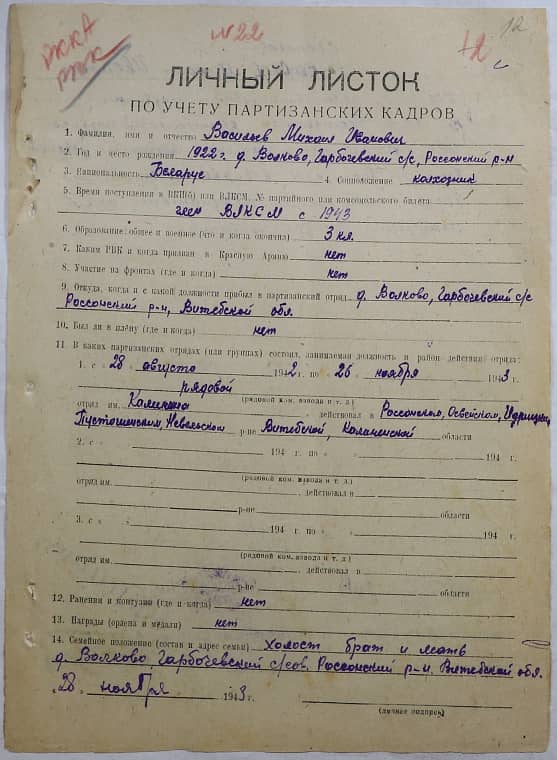 РККА
РВК
№22
12
12
с
ЛИЧНЫЙ ЛИСТОК
ПО УЧЕТУ ПАРТИЗАНСКИХ КАДРОВ
1. Фамилия, имя и отчество Васильев Михаил Иванович
2. Год и место рождения 1922 г. д. Волково, Гарбочевский с/с, Россонский р-н
3. Национальность Беларус 4. Соцположение колхозник
5. Время поступления в ВКП(б) или ВЛКСМ, № партийного или комсомольского билета
член ВЛКСМ с 1943
6. Образование: общее и военное (что и когда окончил) 3 кл.
7. Каким РВК и когда призван в Красную Армию нет
8. Участие на фронтах (где и когда) нет
9. Откуда, когда и с какой должности прибыл в партизанский отряд д. Волково, Гарбочевский с/с
Россонский р-н, Витебской обл.
10. Был ли в плену (где и когда) нет
11. В каких партизанских отрядах (или группах) состоял, занимаемая должность и район действия отряда:
1. с 28 августа 1942 г. по 26 ноября 1943 г.
рядовой
(рядовой ком. взвода и т. д.)
отряд им. Калинина действовал в Россонском, Освейском, Идрицком,
Пустошенским, Невельском р-не Витебской, Калининской области
2. с 194 г. по 194 г.
(рядовой ком. взвода и т. д.)
отряд им. действовал в
р-не области
3. с 194 г. по 194 г.
(рядовой ком. взвода и т. д.)
отряд им. действовал в
р-не области
12. Ранения и контузии (где и когда) нет
13. Награды (ордена и медали) нет
14. Семейное положение (состав и адрес семьи) холост брат и мать
д. Волково, Гарбочевский с/сов, Россонский р-н, Витебской обл.
28 ноября 1943 г.
(личная подпись)